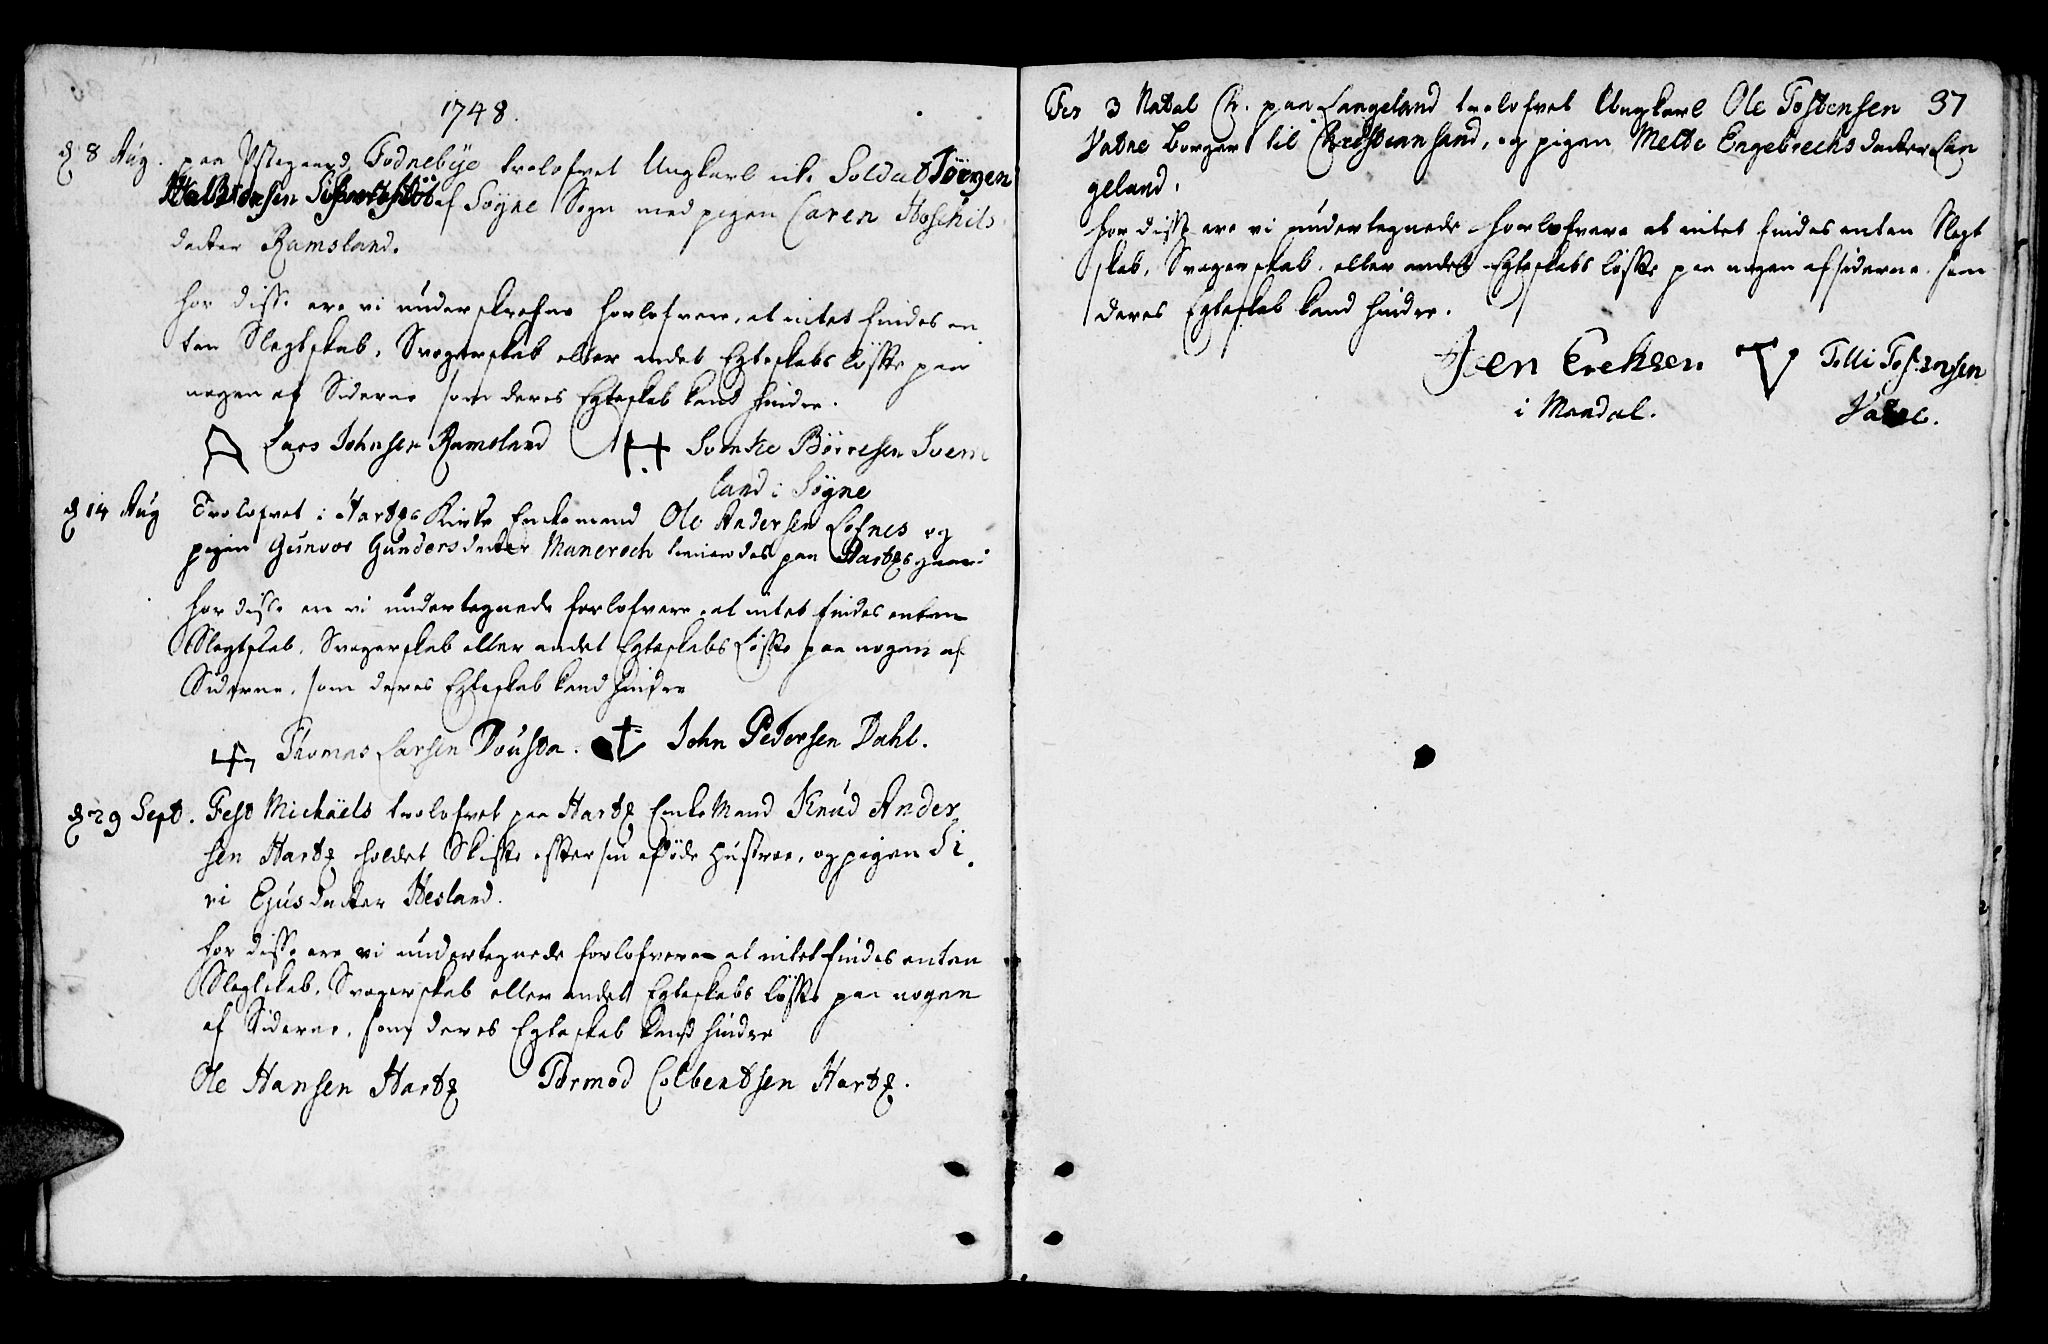 1748.
d 8 Aug. paa Østegaard Todnebye trolofvet Ungkarl Soldat Jörgen
af Sögne Sogn med pigen Caren Aoschils
datter Ramsland.
for disse ere vi underskrefne forlofvere, at intet findes en
ten Slegtskab, Svogerskab eller andet Egteskabs löffte paa
nogen af Siderne som deres Egteskab kand hindre.
Lars Johnsen Ramsland Svenke Börresen Svem
land i Sögne
d 14 Aug Trolofvet i Hartgs Kirke Enkemand Ole Andersen Lofnes og
pigen Gunvor Gundersdatter Maneroch tienendes paa Hartgs gaard
for disse ere vi undertegnede forlofvere, at intet findes enten
Slegtskab, Svogerskab eller andet Egteskabs Löffte paa nogen af
Siderne, som deres Egteskab kand hindre
Thomas Larsen Dousta. John Pedersen Dahl.
d 29 Sept. Fest Michaëls trolofvet paa Hartg Enke Mand Knud Ander
sen Hartg holdet Skiffte effter sin afdöde Hustroe, og pigen Si
ri Ejusdatter Hesland.
for disse ere vi undertegnede forlofvere at intet findes enten
Slegtskab, Svogerskab eller andet Egteskabs löffte paa nogen
af Siderne, som deres Egteskab kand hindre
Ole Hansen Hartg Tormod Colbentsen Hartg.
Fer 3 Natal Chr. paa Langeland trolofvet Ungkarl Ole Tostensen 37
Vatne borger til Christiansand, og pigen Mette Engebrechs datter Lan
geland.
for disse ere vi undertegnede forlofvere at intet findes enten Slegt
skab, Svogerskab, eller andet Egteskabs löffte paa nogen af siderne, som
deres Egteskab kand hindre.
Jen Ereksen Telli Tostensen
i Mandal. Vatne.